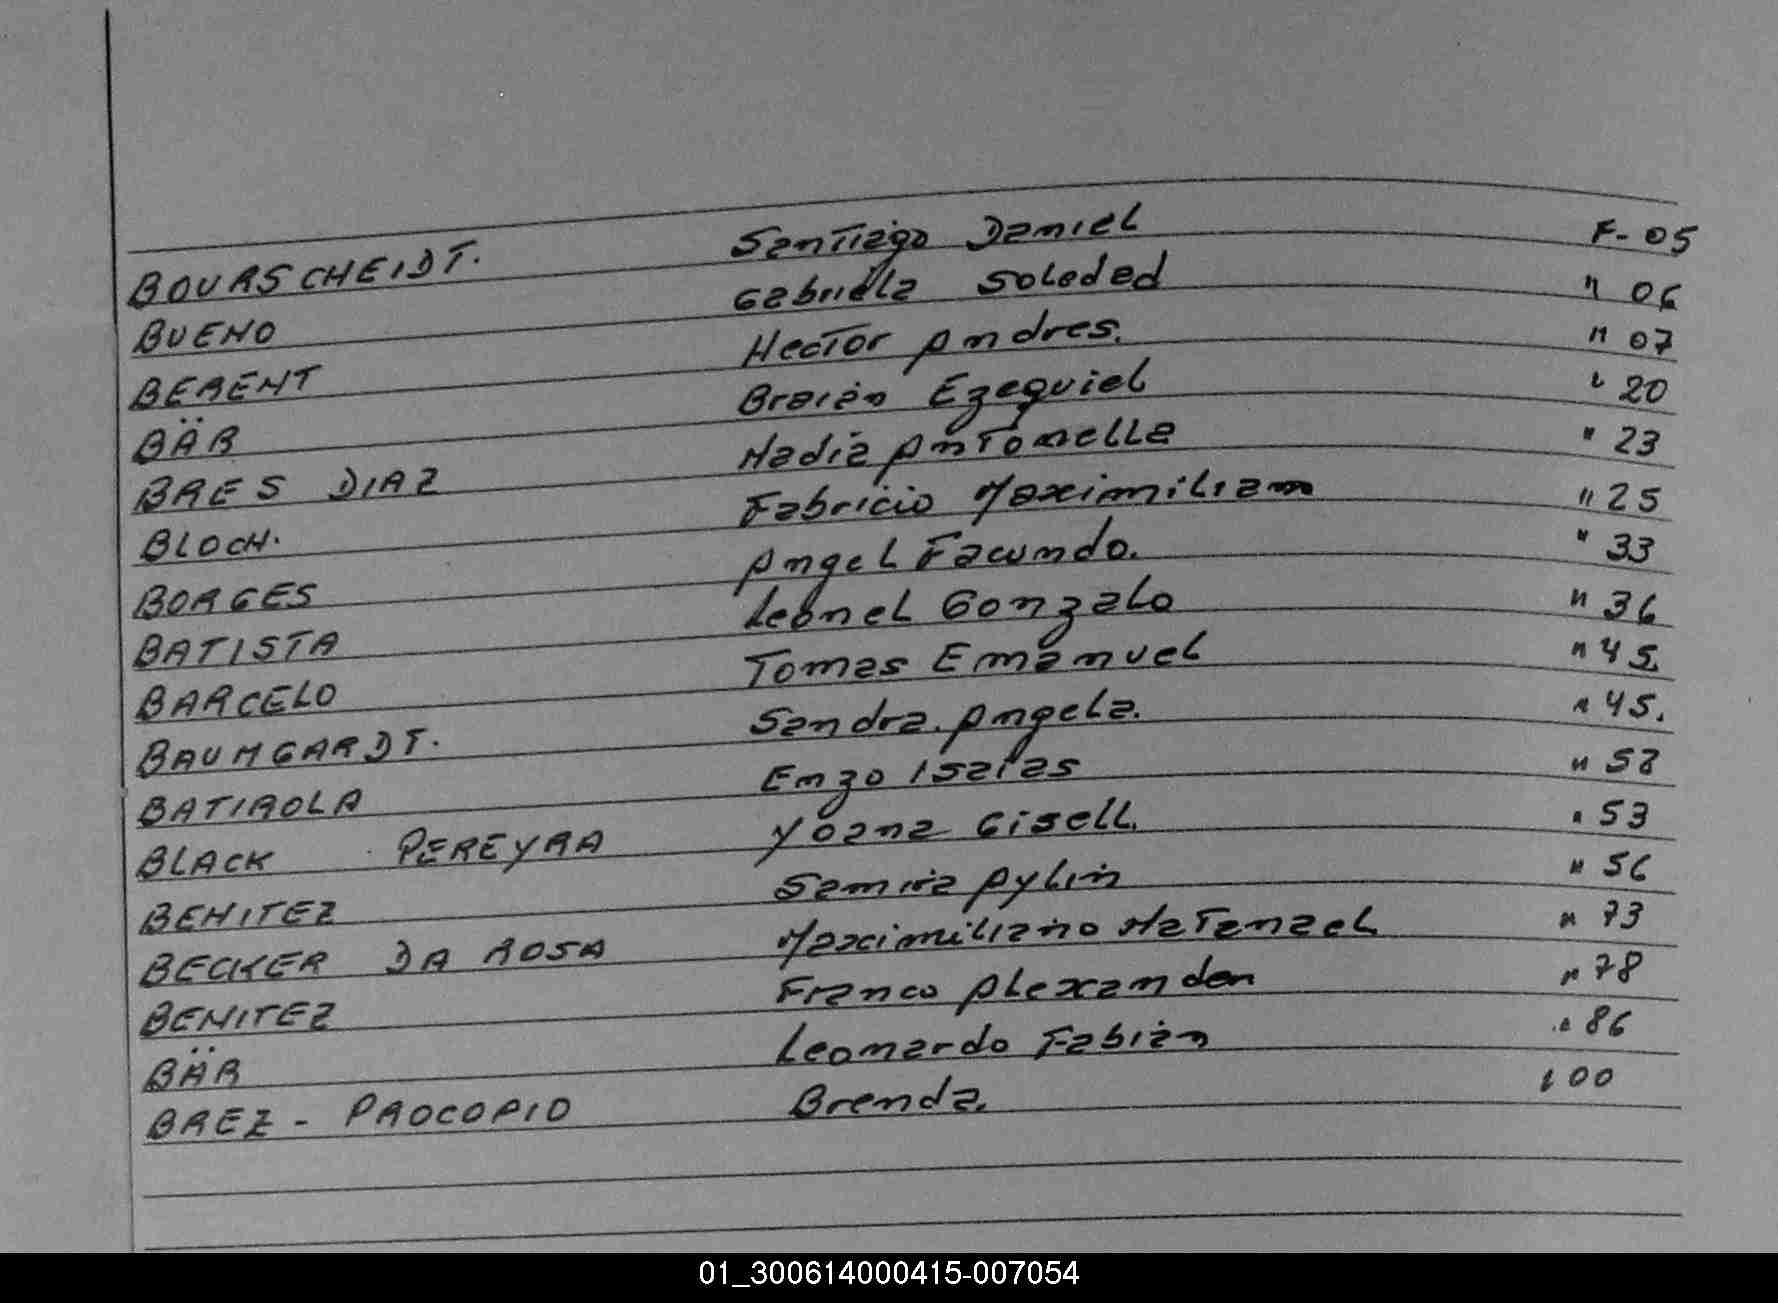 BOURSCHEIDT. Santiago Daniel F-05
BUENO Gabriela Soledad " 06
BERENT Hector Andres. " 07
BÄR Braian Ezequiel " 20
BRES DIAZ Nadia Antonella " 23
BLOCH. Fabricio Maximiliam " 25
BORGES Angel Facundo. " 33
BATISTA Leonel Gonzalo " 36
BARCELO Tomas Emanuel " 45.
BAUMGARDT. Sandra. Angela. " 45.
BATIROLA Enzo Isaias "
BLACK PEREYRA Yoana Gisell. " 53
BENITEZ Samira Aylin " 56
BECKER DA ROSA Maximiliano Natanael " 73
BENITEZ Franco Alexander " 78
BÄR Leonardo Fabián " 86
BREZ - PROCOPIO Brenda. 100
01_300614000415-007054